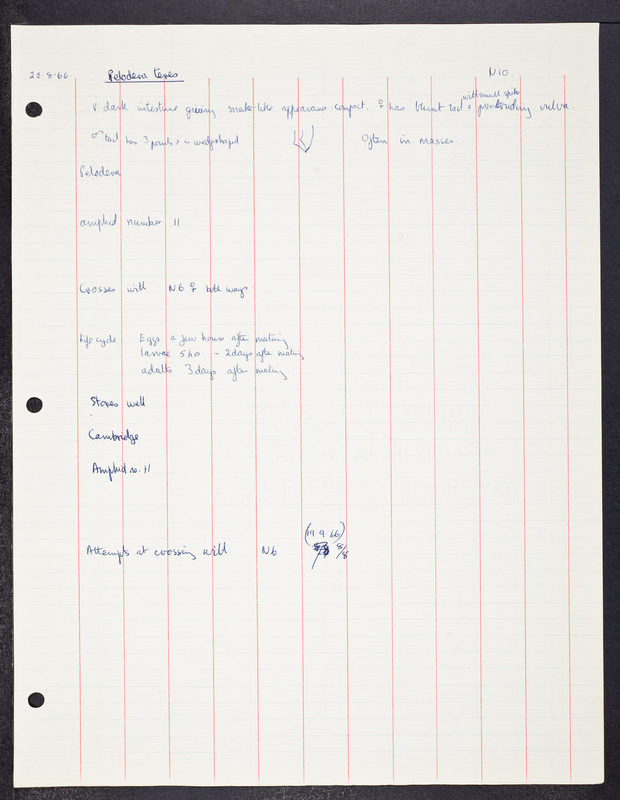 22.8.66 Pelodera teres N10.
with small spike
& dark intestine giving snake-like appearance compact. ♀ has blunt tail & protruding vulva.
♂ tail has 3 points & wedgeshaped Often in masses.
Pelodera
amphid number 11
Crosses with N6 ♀ both ways.
Life cycle Eggs a few hours after mating
larvae 5 hrs - 2 days after mating
adults 3 days after mating
Stores well
Cambridge
Amphid no. 11
(19.9.66)
Attempts at crossing with N6 8/8